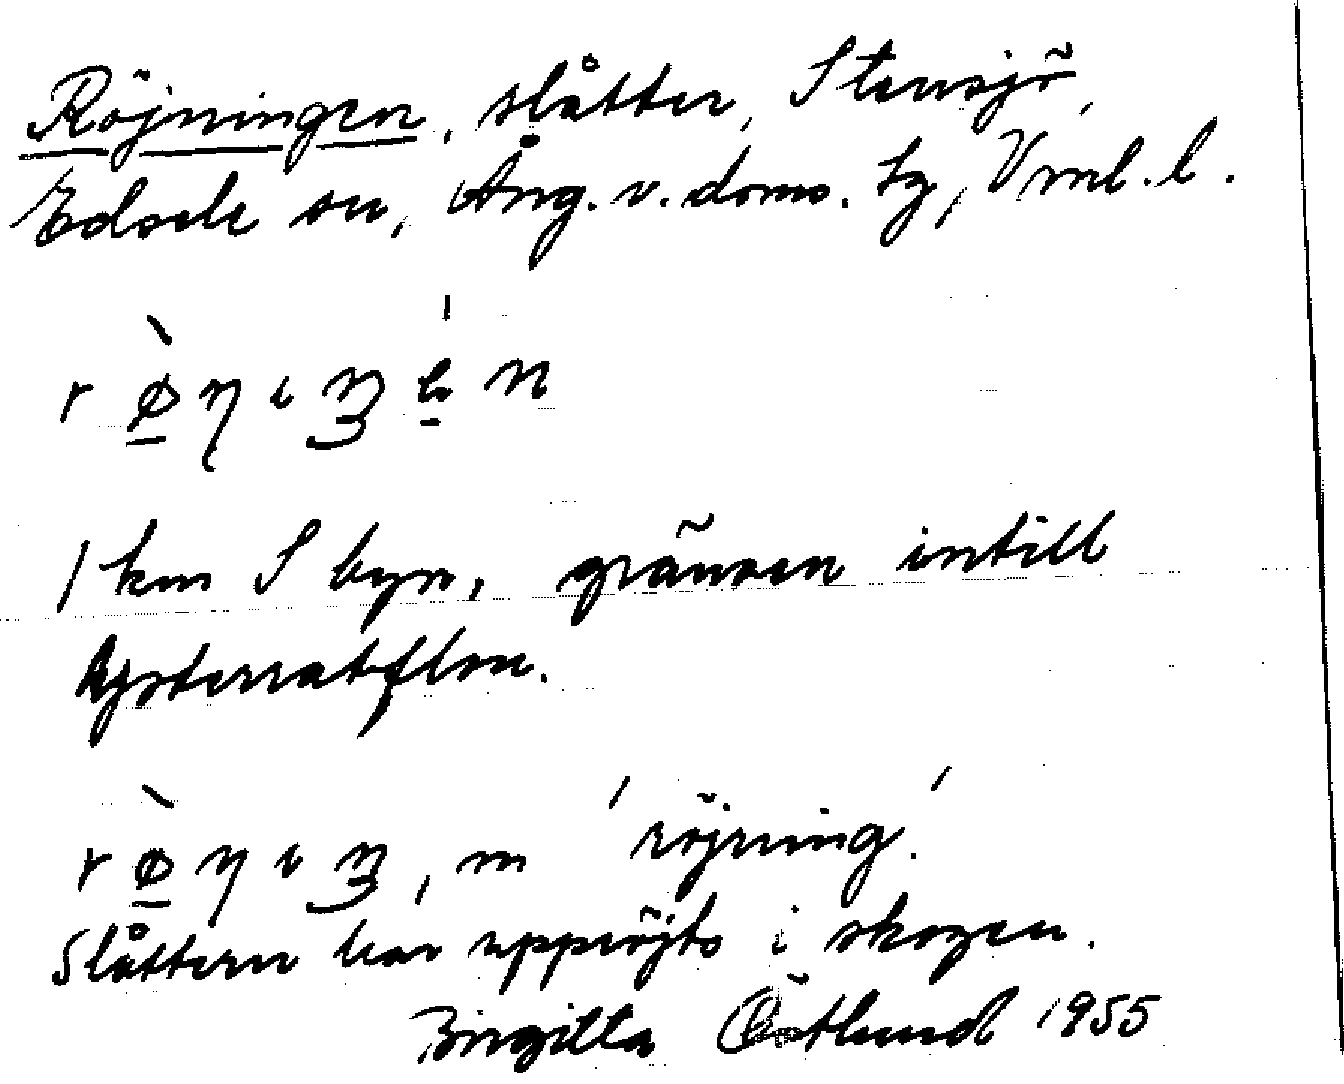 Röjningen, slåtter, Stensjö,
Edsele sn, Ång. v. doms. tg, Vrnl. l.
1 km S byn, gränsen intill
röjning
Slåttern har uppröjts i skogen.
Birgitta Östlund 1955